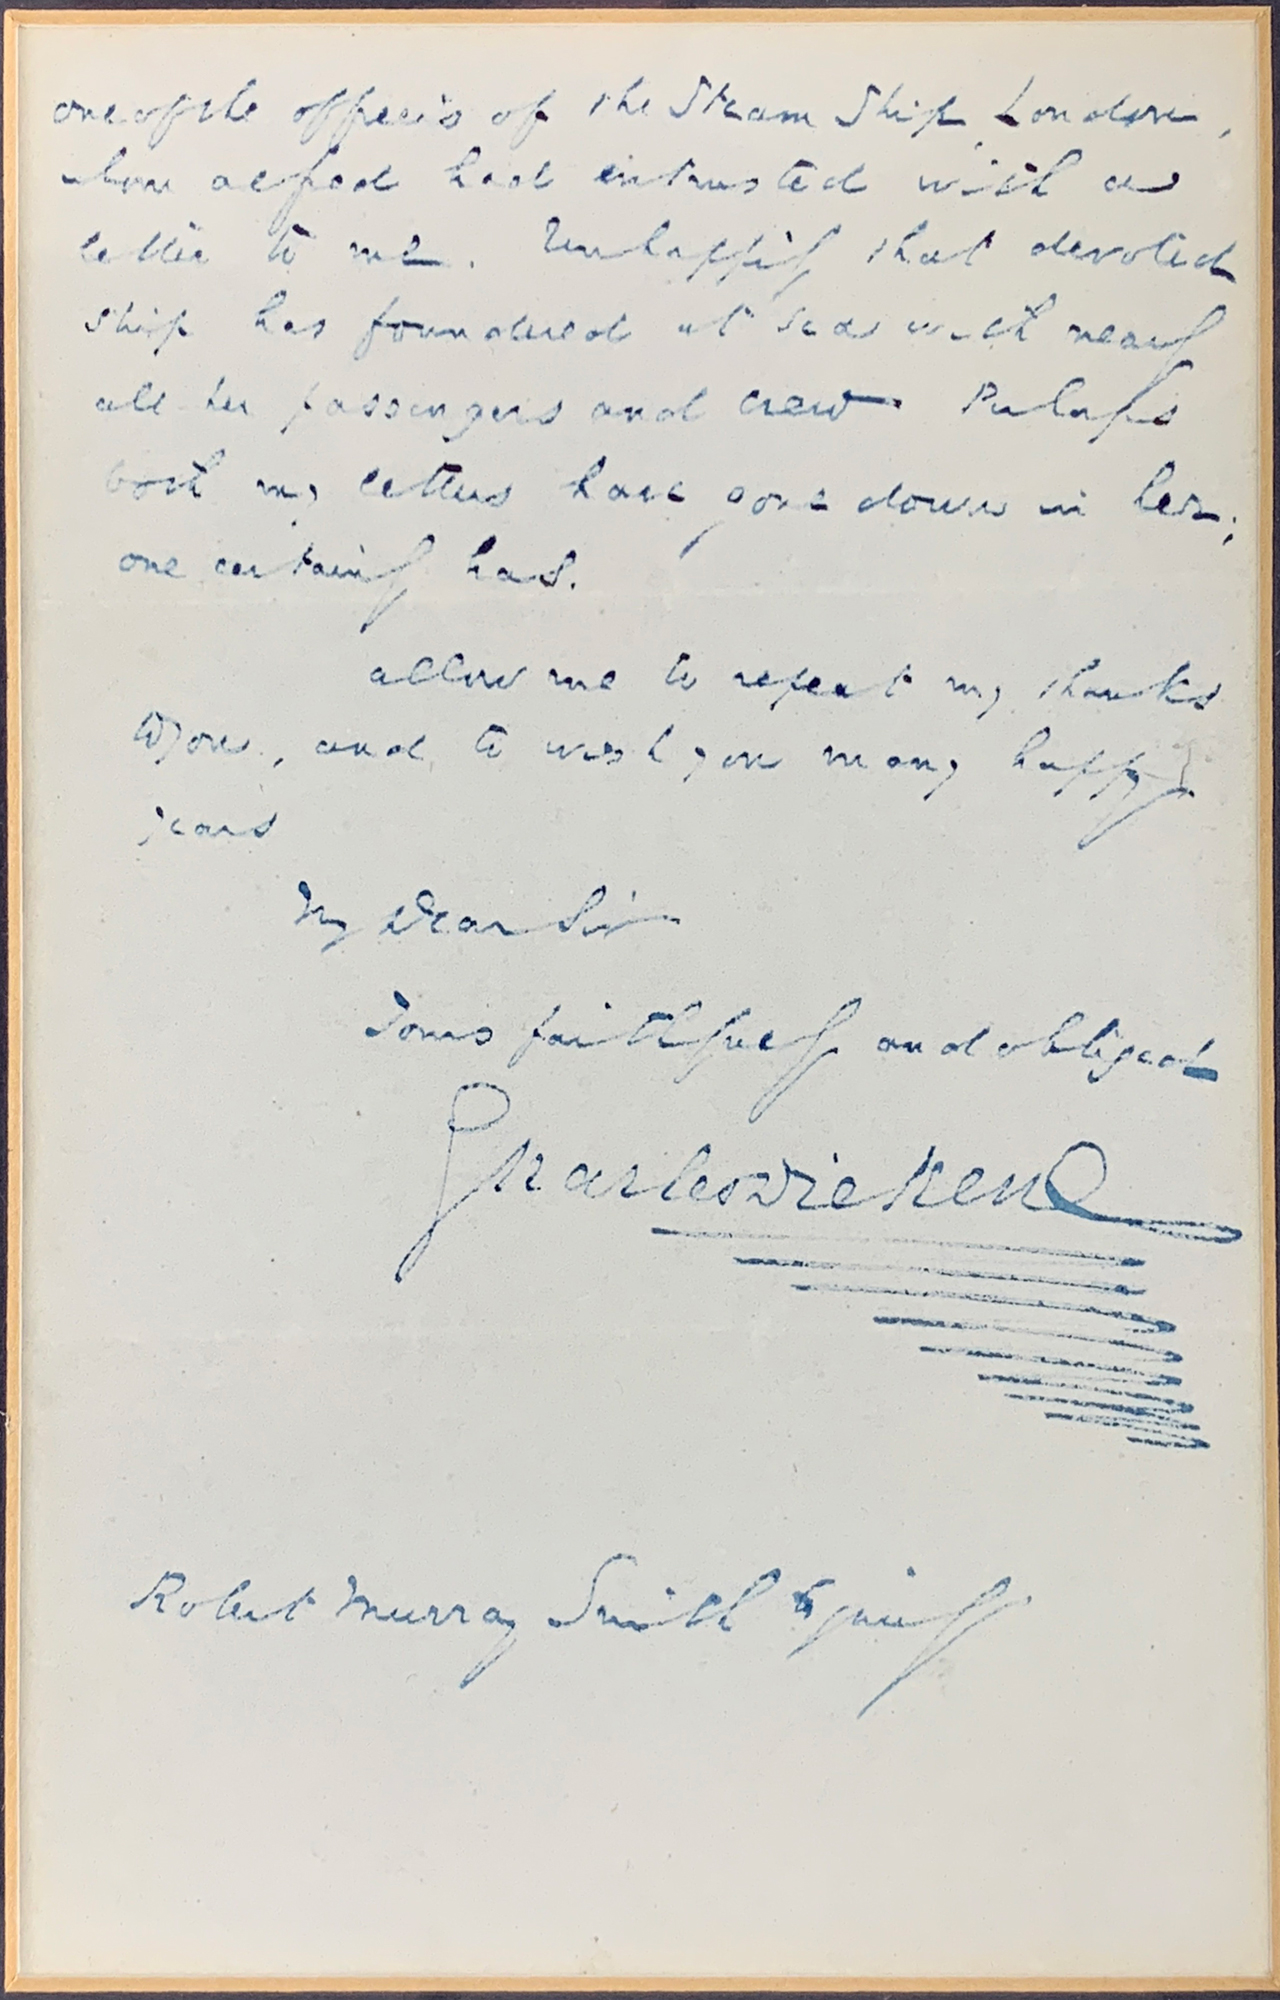 one of the officers of the Steam Ship London,
whom Alfred had entrusted with a
letter to me. Unhappily that devoted
ship has foundered at sea with nearly
all her passengers and crew. Perhaps
both my letters have gone down in her;
one certainly has.
Allow me to repeat my thanks
to you, and to wish you many happy
years
My Dear Sir
Yours faithfully and obliged
Charles Dickens
Robert Murray Smith Esquire